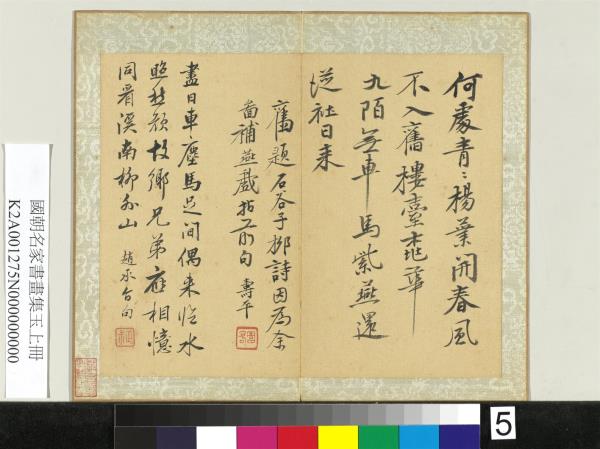 何處青〻楊葉開春風
不入舊樓臺老華
九陌無車馬紫燕還
從社日來
舊題石谷子柳詩因為余
畣補燕戲拈前句 壽平
盡日車塵馬足間偶來臨水
照愁顏故鄉兄弟應相憶
同看溪南柳外山
國朝名家書畫集玉上冊
K2A001275N000000000
5